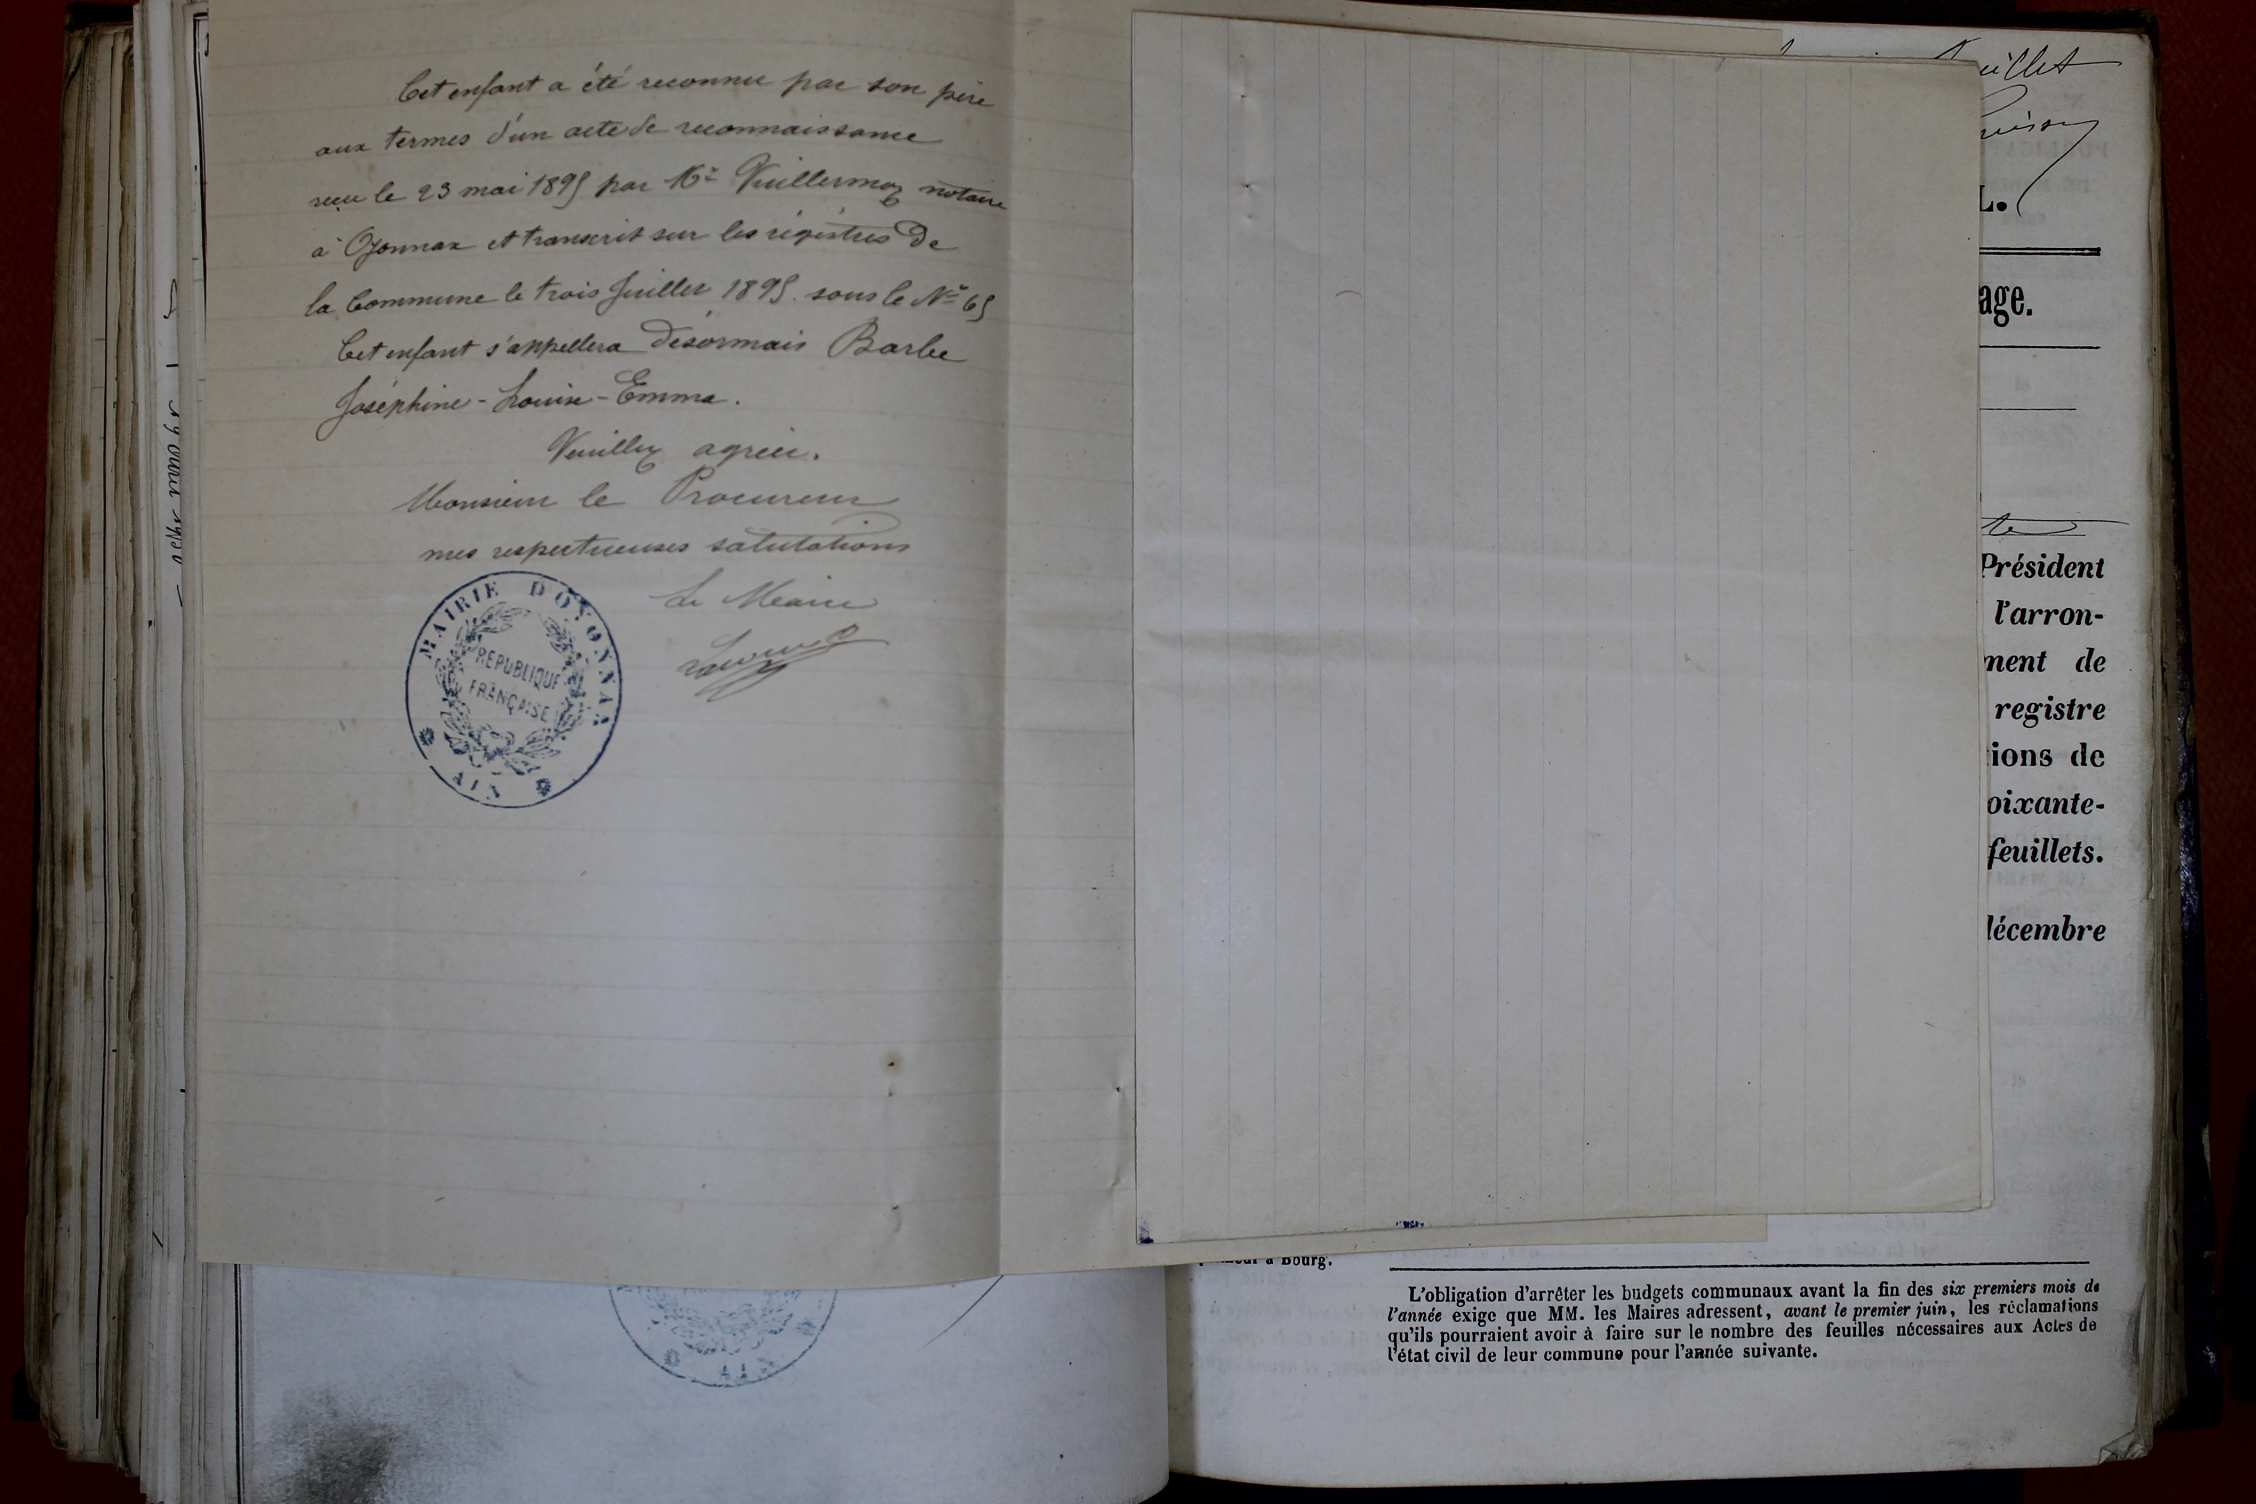 Cet enfant a été reconnu par son père
aux termes d'un acte de reconnaissance
reçu le 23 mai 1895 par Me Vuillermoz notaire
à Oyonnax et transcrit sur les régistres de
la Commune le trois Juillet 1895 sous le No 65
Cet enfant s'appellera désormais Barbe
Joséphine - Louise - Emma.
Veuillez agréer.
Monsieur le Procureur
mes respectueuses salutations
Le Maire
MAIRIE D'OYONNAX
RÉPUBLIQUE
FRANÇAISE
AIN
AIN
uillet
L.
age.
te
Président
l'arron-
ment de
registre
tions de
oixante-
feuillets.
décembre
à Bourg.
L'obligation d'arrêter les budgets communaux avant la fin des six premiers mois de
l'année exige que MM. les Maires adressent, avant le premier juin, les réclamations
qu'ils pourraient avoir à faire sur le nombre des feuilles nécessaires aux Actes de
l'état civil de leur commune pour l'année suivante.